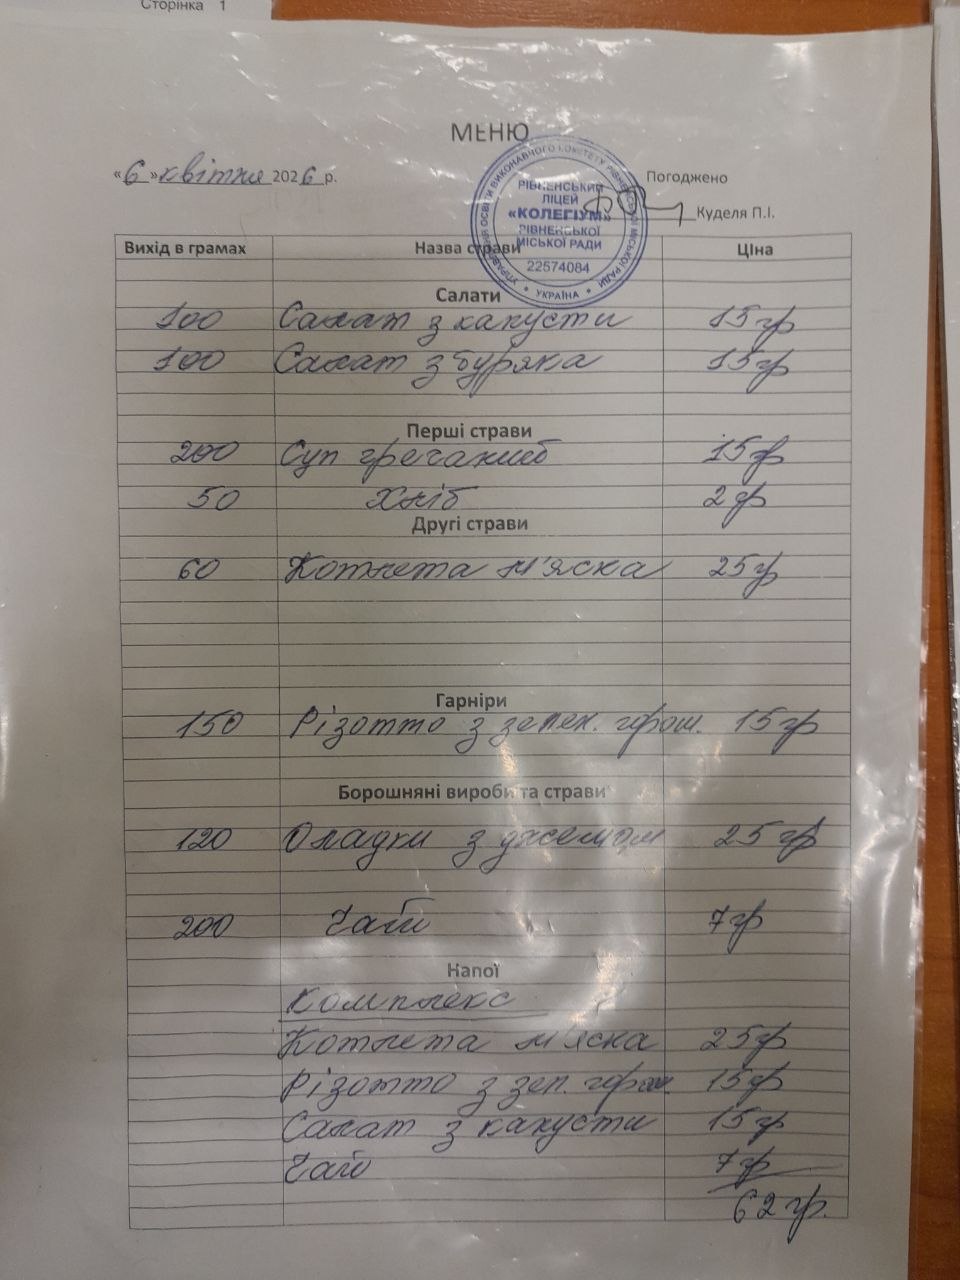 Сторінка 1
МЕНЮ
«6» квітня 2026 р.
Погоджено
Куделя П.І.
УПРАВЛІННЯ ОСВІТИ ВИКОНАВЧОГО КОМІТЕТУ РІВНЕНСЬКОЇ МІСЬКОЇ РАДИ
* УКРАЇНА *
РІВНЕНСЬКИЙ
ЛІЦЕЙ
«КОЛЕГІУМ»
РІВНЕНСЬКОЇ
МІСЬКОЇ РАДИ
22574084
Вихід в грамах Назва страви Ціна
Салати
100 Салат з капусти 15 гр
100 Салат з буряка 15 гр
Перші страви
200 Суп гречаний 15 гр
50 Хліб 2 гр
Другі страви
60 Котлета м'ясна 25 гр
Гарніри
150 Різотто з зелен. горош. 15 гр
Борошняні вироби та страви
120 Оладки з джемом 25 гр
200 Чай 7 гр
Напої
Комплекс
Котлета м'ясна 25 гр
Різотто з зел. горош. 15 гр
Салат з капусти 15 гр
Чай 7 гр
62 гр.